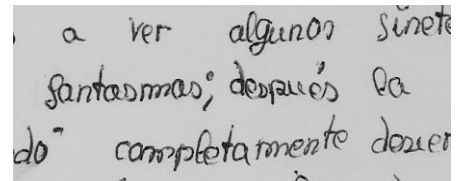 a ver algunos sinete
fantasmas; después la
do" completamente deser